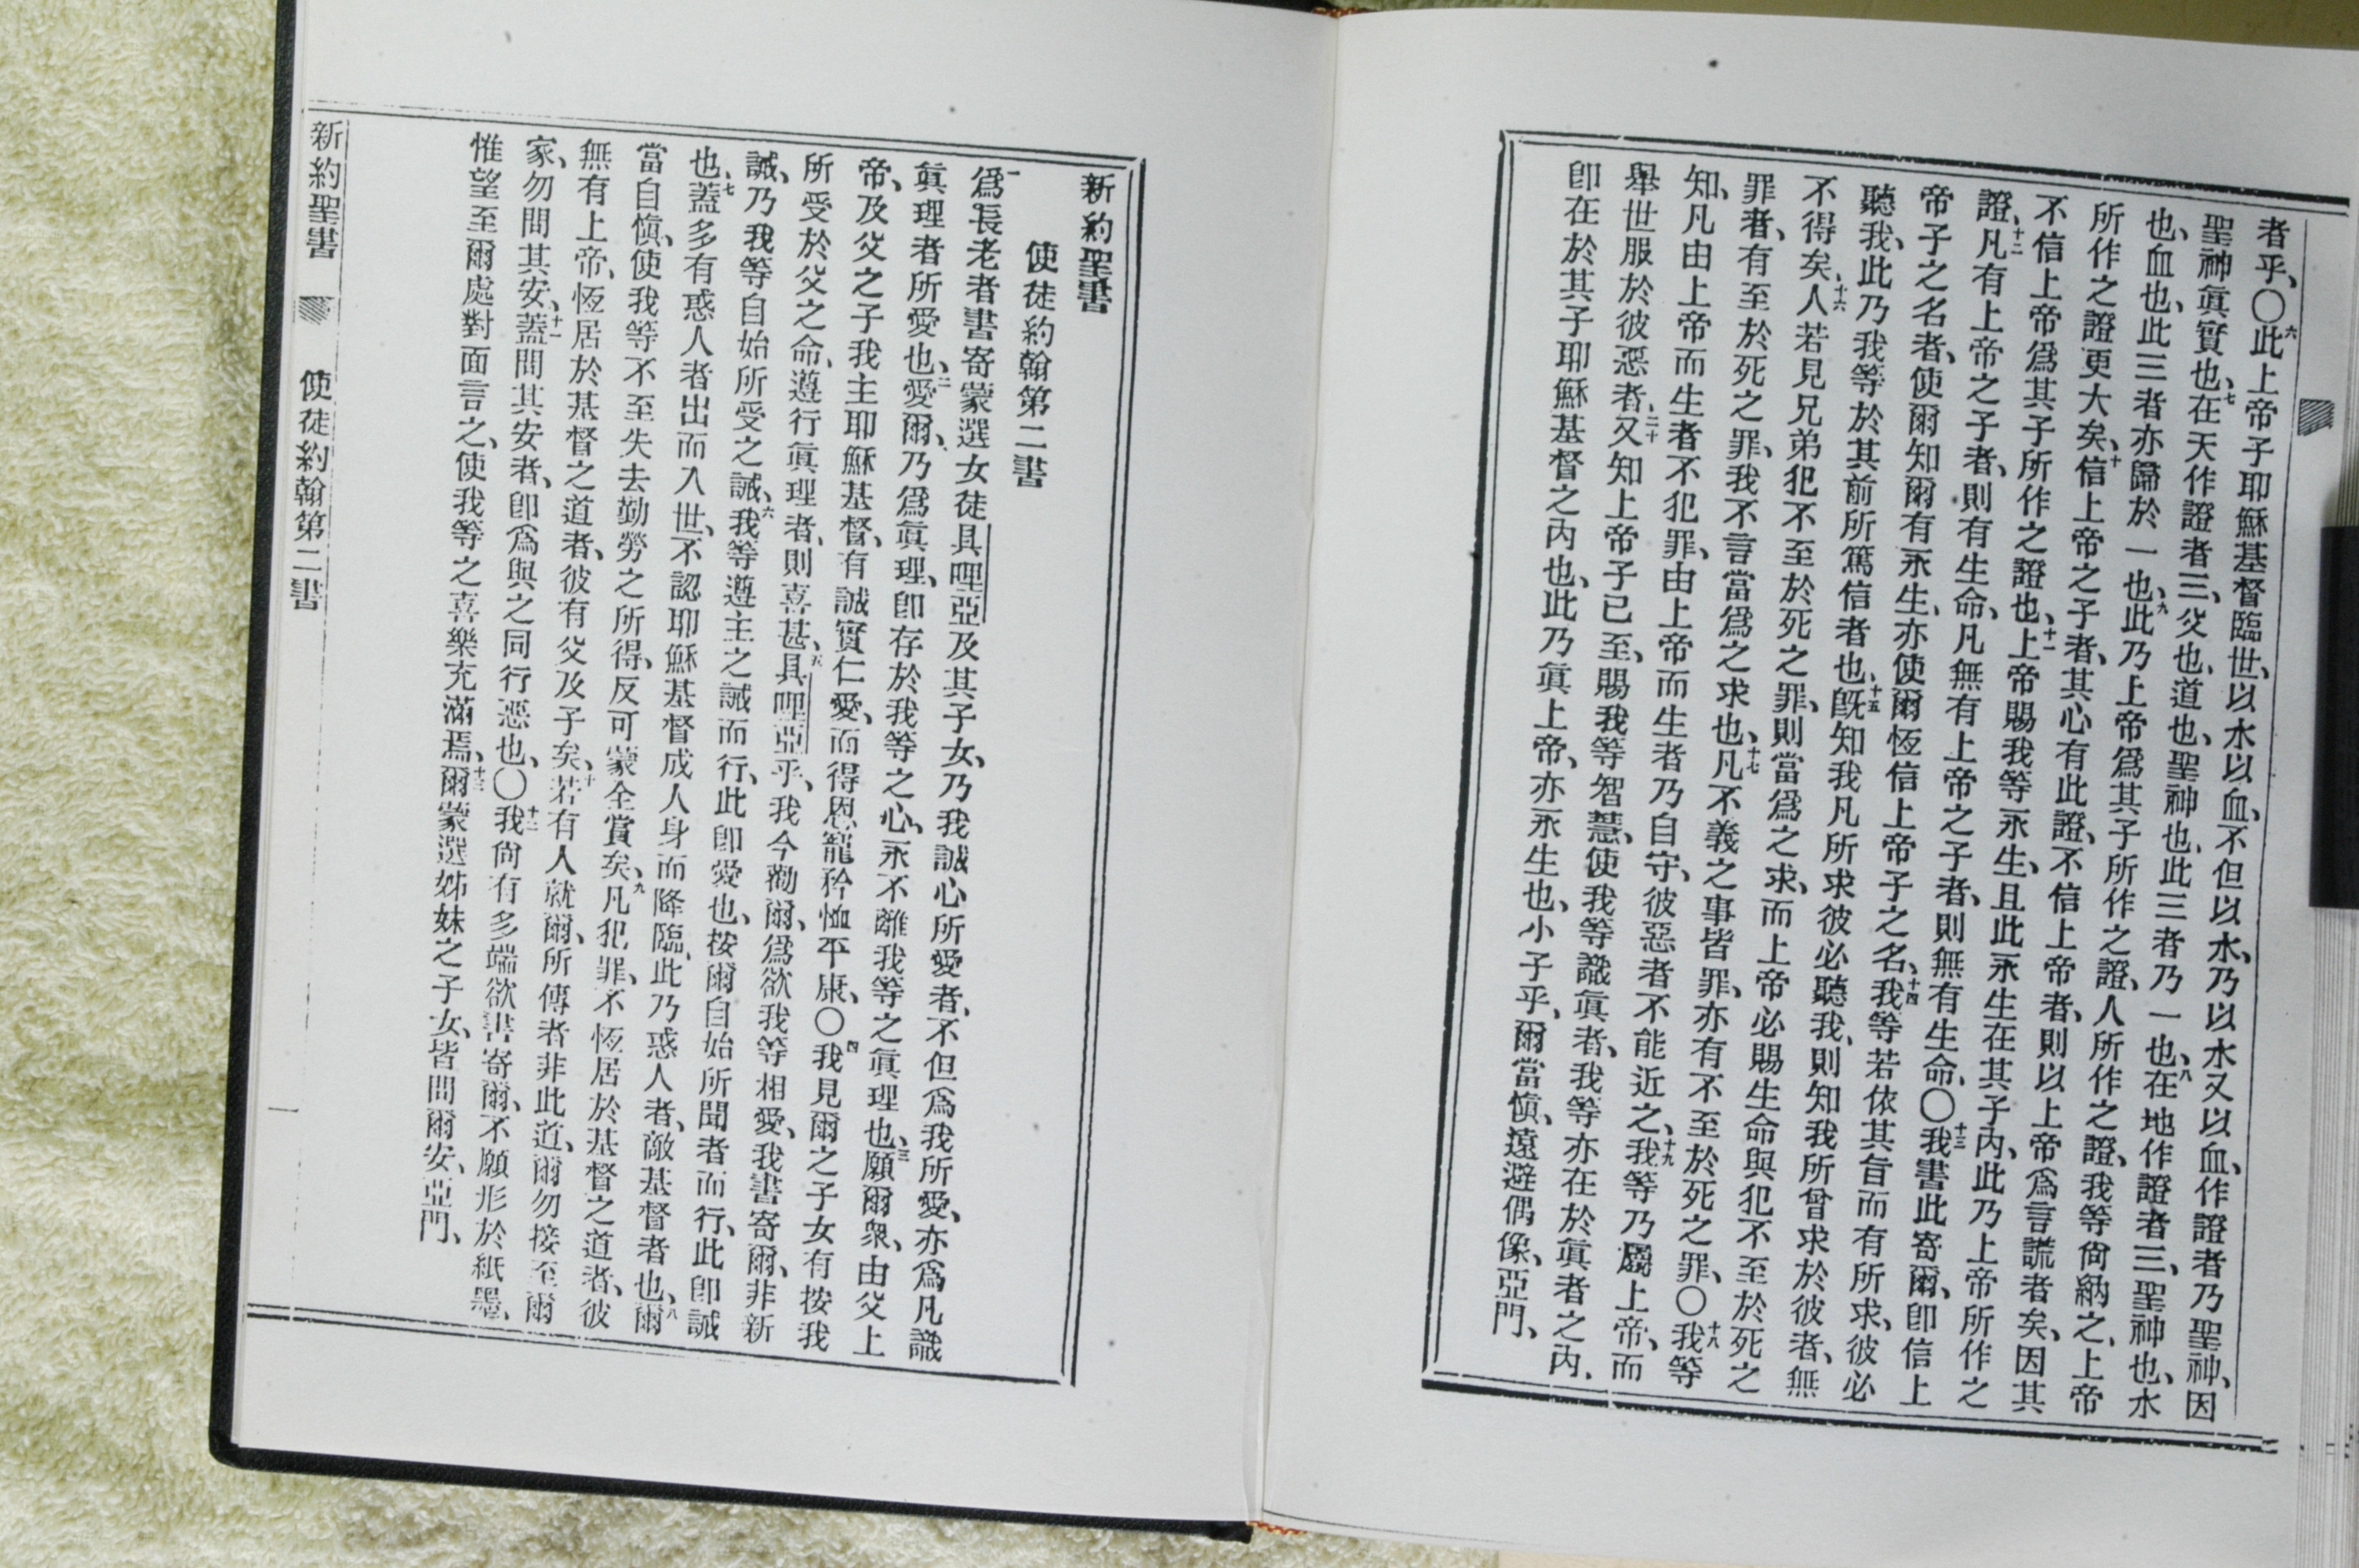 者乎、〇六此上帝子耶穌基督臨世、以水以血、不但以水、乃以水又以血、作證者乃聖神、因
聖神眞實也、七在天作證者三、父也、道也、聖神也、此三者乃一也、八在地作證者三、聖神也、水
也、血也、此三者亦歸於一也、九此乃上帝爲其子所作之證、人所作之證、我等尙納之、上帝
所作之證更大矣、十信上帝之子者、其心有此證、不信上帝者、則以上帝爲言謊者矣、因其
不信上帝爲其子所作之證也、十一上帝賜我等永生、且此永生在其子內、此乃上帝所作之
證、十二凡有上帝之子者、則有生命、凡無有上帝之子者、則無有生命、〇十三我書此寄爾、卽信上
帝子之名者、使爾知爾有永生、亦使爾恆信上帝子之名、十四我等若依其旨而有所求、彼必
聽我、此乃我等於其前所篤信者也、十五旣知我凡所求彼必聽我、則知我所曾求於彼者、無
不得矣、十六人若見兄弟犯不至於死之罪、則當爲之求、而上帝必賜生命與犯不至於死之
罪者、有至於死之罪、我不言當爲之求也、十七凡不義之事皆罪、亦有不至於死之罪、〇十八我等
知、凡由上帝而生者不犯罪、由上帝而生者乃自守、彼惡者不能近之、十九我等乃屬上帝、而
舉世服於彼惡者、二十又知上帝子已至、賜我等智慧、使我等識眞者、我等亦在於眞者之內、
卽在於其子耶穌基督之內也、此乃眞上帝、亦永生也、小子乎、爾當愼、遠避偶像、亞門、
新約聖書
使徒約翰第二書
一爲長老者書寄蒙選女徒具哩亞及其子女、乃我誠心所愛者、不但爲我所愛、亦爲凡識
眞理者所愛也、二愛爾、乃爲眞理、卽存於我等之心、永不離我等之眞理也、三願爾衆、由父上
帝、及父之子我主耶穌基督、有誠實仁愛、而得恩寵矜恤平康、〇四我見爾之子女有按我
所受於父之命、遵行眞理者、則喜甚、五具哩亞乎、我今勸爾、爲欲我等相愛、我書寄爾、非新
誡、乃我等自始所受之誡、六我等遵主之誡而行、此卽愛也、按爾自始所聞者而行、此卽誡
也、七蓋多有惑人者出而入世、不認耶穌基督成人身而降臨、此乃惑人者、敵基督者也、八爾
當自愼、使我等不至失去勤勞之所得、反可蒙全賞矣、九凡犯罪、不恆居於基督之道者、彼
無有上帝、恆居於基督之道者、彼有父及子矣、十若有人就爾、所傳者非此道、爾勿接至爾
家、勿問其安、十一蓋問其安者、卽爲與之同行惡也、〇十二我尙有多端欲書寄爾、不願形於紙墨、
惟望至爾處對面言之、使我等之喜樂充滿焉、十三爾蒙選姊妹之子女、皆問爾安、亞門、
新約聖書 使徒約翰第二書 一